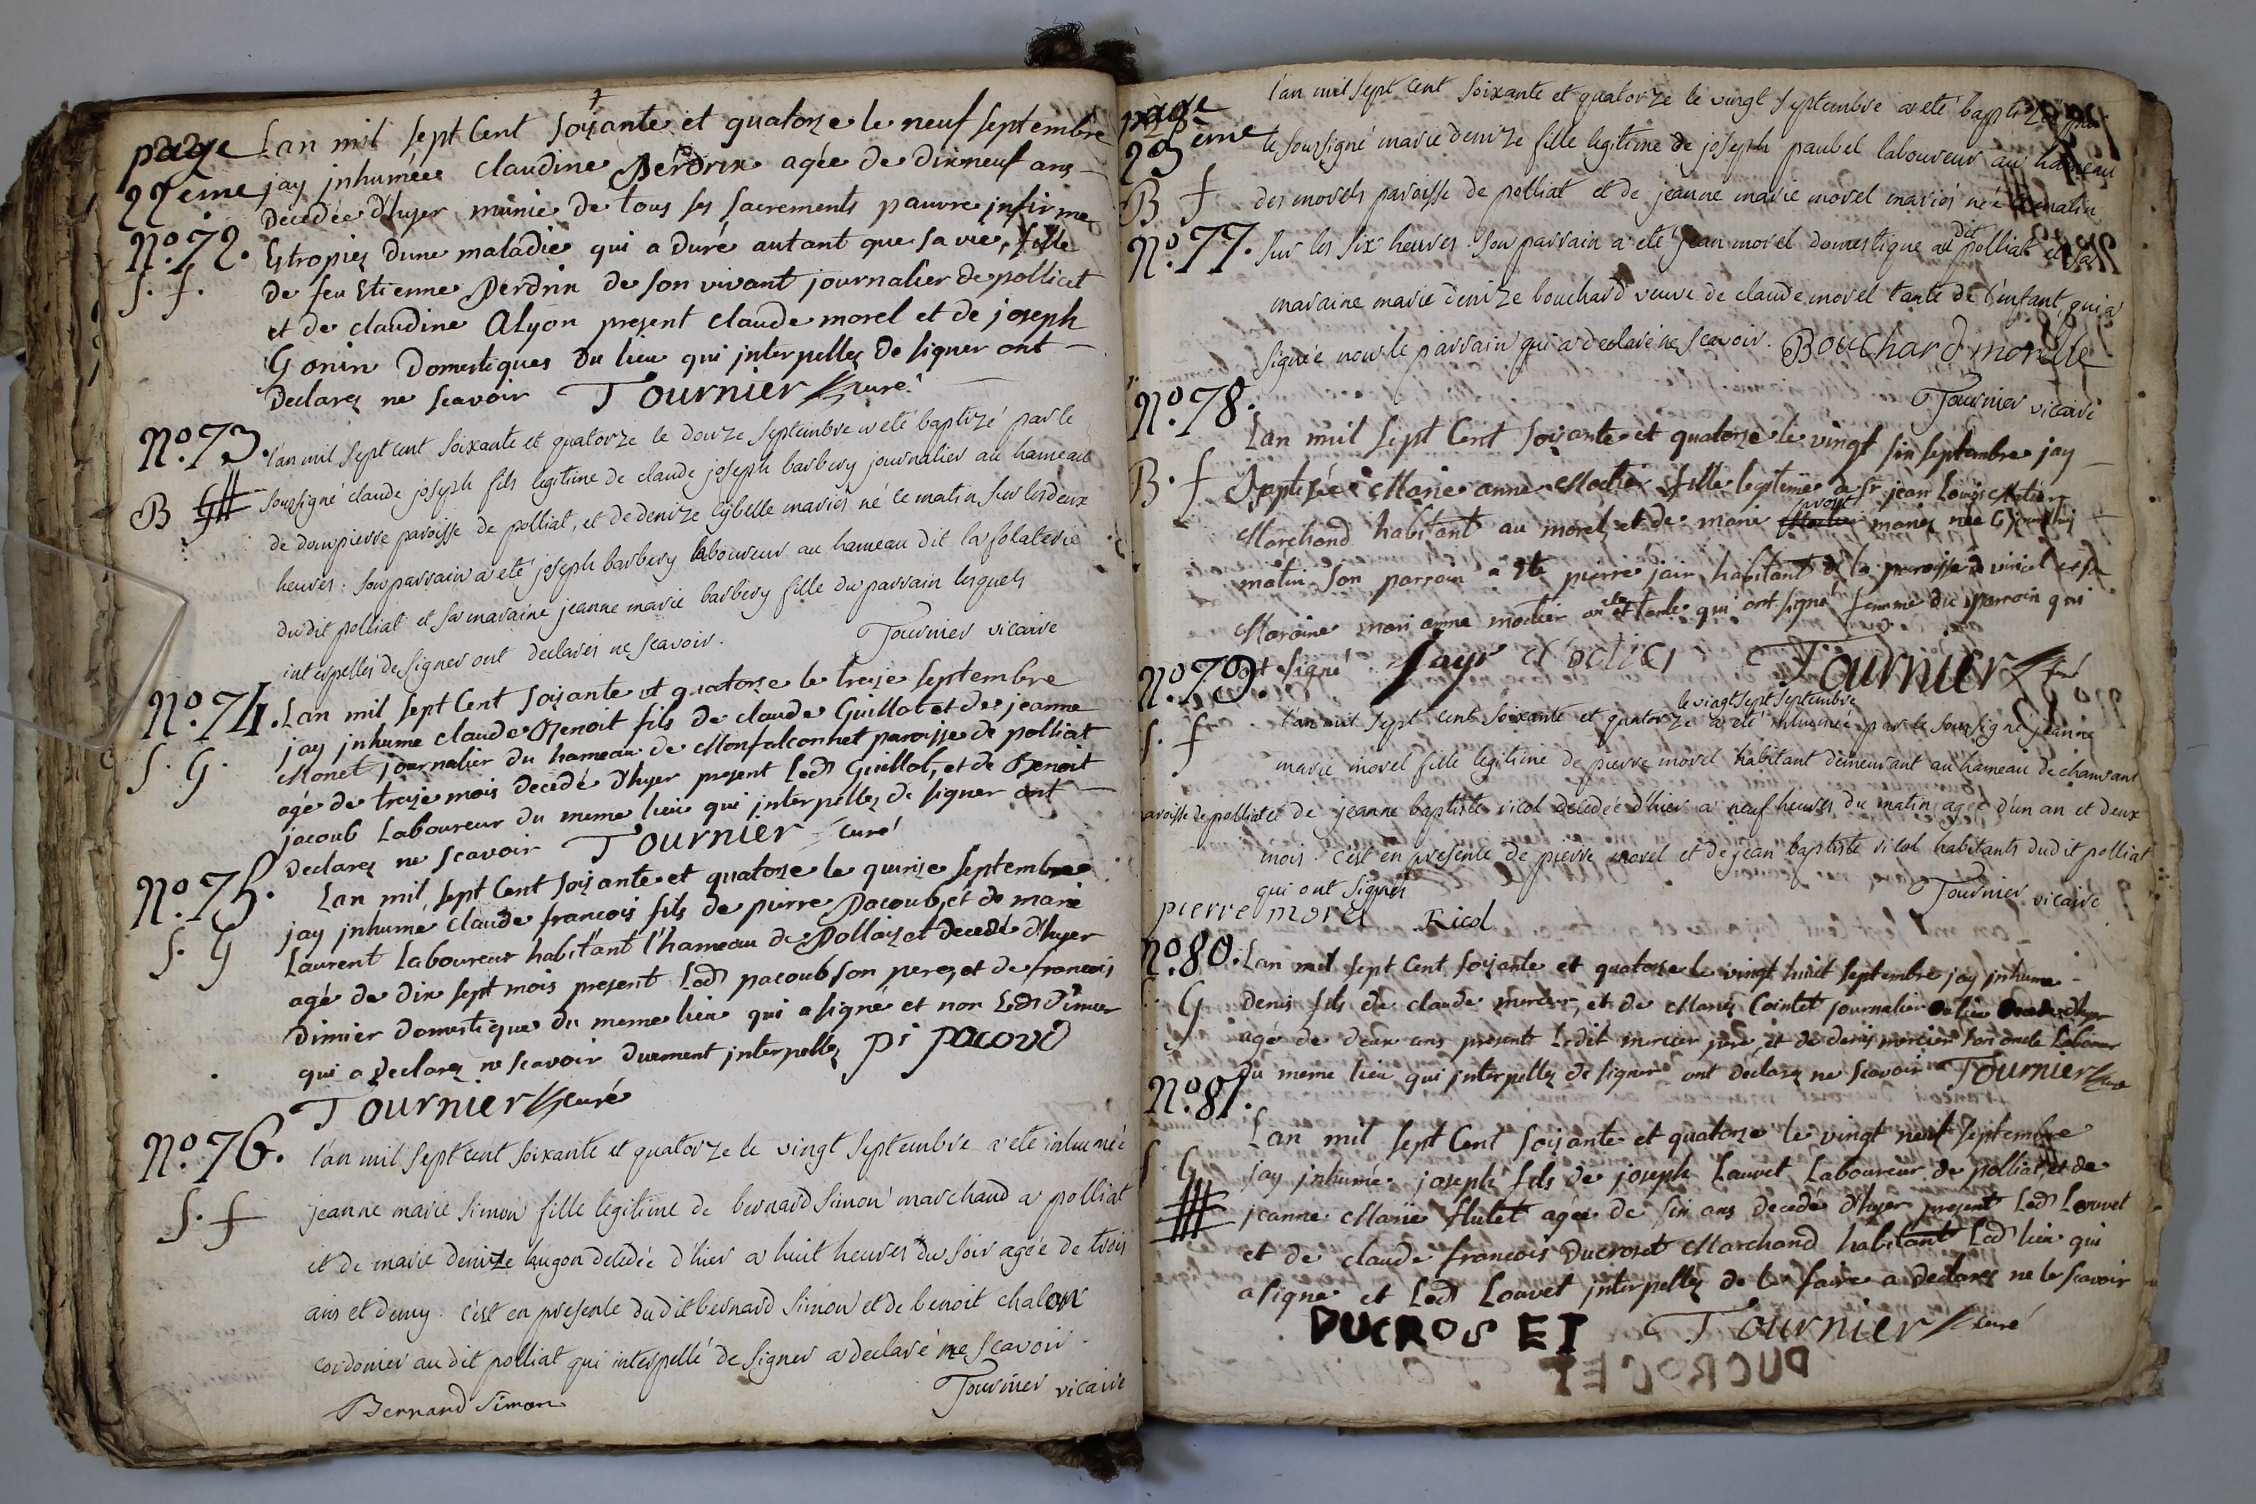 page
22ème
Lan mil sept Cent soixante et quatorze le neuf septembre
jay jnhumée claudine Perdrix agée de dixneuf ans
Decedée d'hyer munie de tous ses sacrements pauvre jnfirme
Estropiez dune maladie qui a duré autant que sa vie, fille
de feu Etienne Perdrix de son vivant journalier de polliat
et de claudine Alyon present claude morel et de joseph
Gonin Domestiques du lieu qui jnterpellez de signer ont
Declarez ne scavoir Tournier curé
N°. 72.
S. f.
N°. 73.
B G
l'an mil sept cent soixante et quatorze le douze septembre a eté baptizé par le
soussigné claude joseph fils legitime de claude joseph barbery journalier au hameau
de dompierre paroisse de polliat, et de denize cybelle mariés né ce matin sur les deux
heures: son parrain a eté joseph barbery laboureur au hameau dit la folaterie
dudit polliat et sa maraine jeanne marie barbery fille du parrain lesquels
interpellés de signer ont declarés ne scavoir. Tournier vicaire
N°. 74.
S. G.
Lan mil sept Cent soixante et quatorze le treize septembre
jay jnhume claude Benoit fils de claude Guillot et de jeanne
Monet journalier du hameau de Monfalconnet paroisse de polliat
agé de treize mois decedé d'hyer present Led Guillot, et de Benoit
jacoub Laboureur du meme lieu qui jnterpellez de signer ont
Declarez ne scavoir Tournier curé
N°. 75.
S. G
Lan mil, sept Cent soixante et quatorze le quinze septembre
jay jnhume claude francois fils de pierre Pacoub, et de marie
Laurent Laboureur habitant l'hameau de Pollaizet decedé d'hyer
agé de dix sept mois present Led pacoub son pere, et de francois
Dimier domestique du meme lieu qui a signé et non Led Dimier
qui a declarez ne scavoir duement jnterpellez pi pacoud
Tournier curé
N°. 76.
S. f
l'an mil sept cent soixante et quatorze le vingt septembre a eté inhumée
jeanne marie simon fille legitime de bernard simon marchand a polliat
et de marie denize laugon decedée d'hier a huit heures du soir agée de trois
ans et demy. c'est en presence dudit bernard simon et de benoit chalon
cordonier au dit polliat qui interpellé de signer a declaré ne scavoir
Bernard Simon Tournier vicaire
page
23ème
B f
N°. 77.
l'an mil sept cent soixante et quatorze le vingt septembre a eté baptizée par
le soussigné marie denize fille legitime de joseph paubel laboureur au hameau
des morels paroisse de polliat et de jeanne marie morel mariés née ce matin
sur les six heures. son parrain a eté jean morel domestique au dit polliat et sa
maraine marie denize bouchard veuve de claude morel tante de l'enfant, qui a
signée non le parrain qui a declaré ne scavoir. Bouchard morelle
Tournier vicaire
N°. 78.
B. f
Lan mil sept Cent soixante et quatorze le vingt six septembre jay
Baptizée Marie anne Motier fille legitime de Sr jean Louis Motier
Marchand habitant au morel, et de marie mariez née ce jourdhuj
matin son parrain a ete pierre jair habitant de la paroisse de et sa
Maraine mari anne motier tante qui ont signé femme du parrain qui
ont signé jayr Motier Tournier curé
N°. 79.
S. f
le vingt sept septembre
l'an mil sept cent soixante et quatorze a eté inhumée par le soussigné jeanne
marie morel fille legitime de pierre morel habitant demeurant au hameau de chamvant
paroisse de polliat et de jeanne baptiste ricol decedée d'hier a neuf heures du matin agée d'un an et deux
mois. c'est en presence de pierre morel et de jean baptiste ricol habitants dudit polliat
qui ont signés Tournier vicaire
pierre morel Ricol
N°. 80.
S. G
Lan mil sept Cent soixante et quatorze le vingt huit septembre jay jnhume
denis fils de claude mercier, et de Marie Cointet journalier du lieu decedé d'hyer
agé de deux ans presents Ledit mercier pere, et de denis mercier son oncle Laboureur
du meme lieu qui jnterpellez de signer ont declarez ne scavoir Tournier curé
N°. 81.
S. G
Lan mil sept Cent soixante et quatorze le vingt neuf septembre
jay jnhumé joseph fils de joseph Lauvet Laboureur de polliat, et de
jeanne Marie Hutet agée de six ans decedé d'hyer present Led Louvet
et de claude francois Ducroset Marchand habitant Led lieu qui
a signé et Led Louvet jnterpellez de le faire a declarez ne le scavoir
DUCROSET Tournier curé
DUCROCET